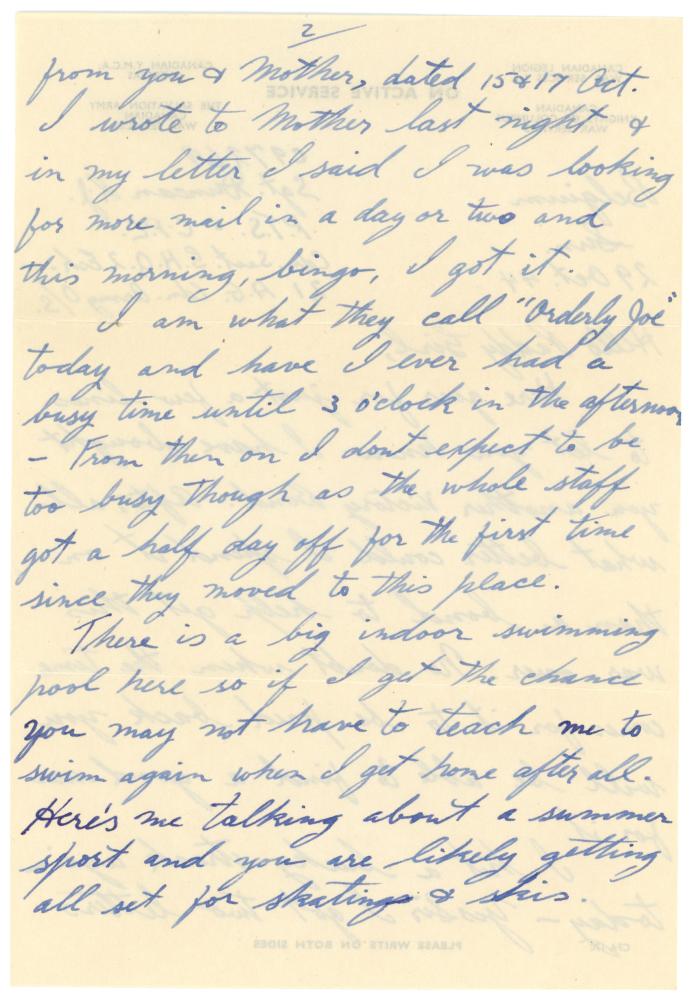 2
from you & Mother, dated 15 & 17 Oct.
I wrote to Mother last night &
in my letter I said I was looking
for more mail in a day or two and
this morning, bingo, I got it.
I am what they call "Orderly Joe"
today and have I ever had a
busy time until 3 o'clock in the afternoon
- From then on I dont expect to be
too busy though as the whole staff
got a half day off for the first time
since they moved to this place.
There is a big indoor swimming
pool here so if I get the chance
you may not have to teach me to
swim again when I get home after all.
Here's me talking about a summer
sport and you are likely getting
all set for skating & skis.
PLEASE WRITE ON BOTH SIDES